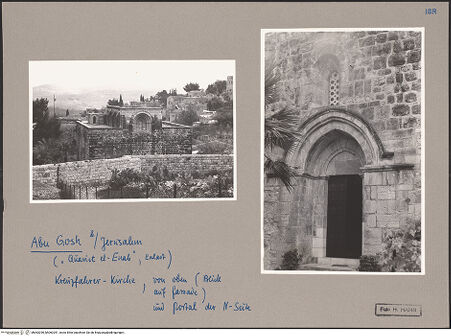 ISR
Abu Gosh b/Jerusalem
("Quariet el-Enab",
Kreuzfahrer-Kirche, von oben (Blick
auf Fassade)
und Portal der N-Seite
Foto H.